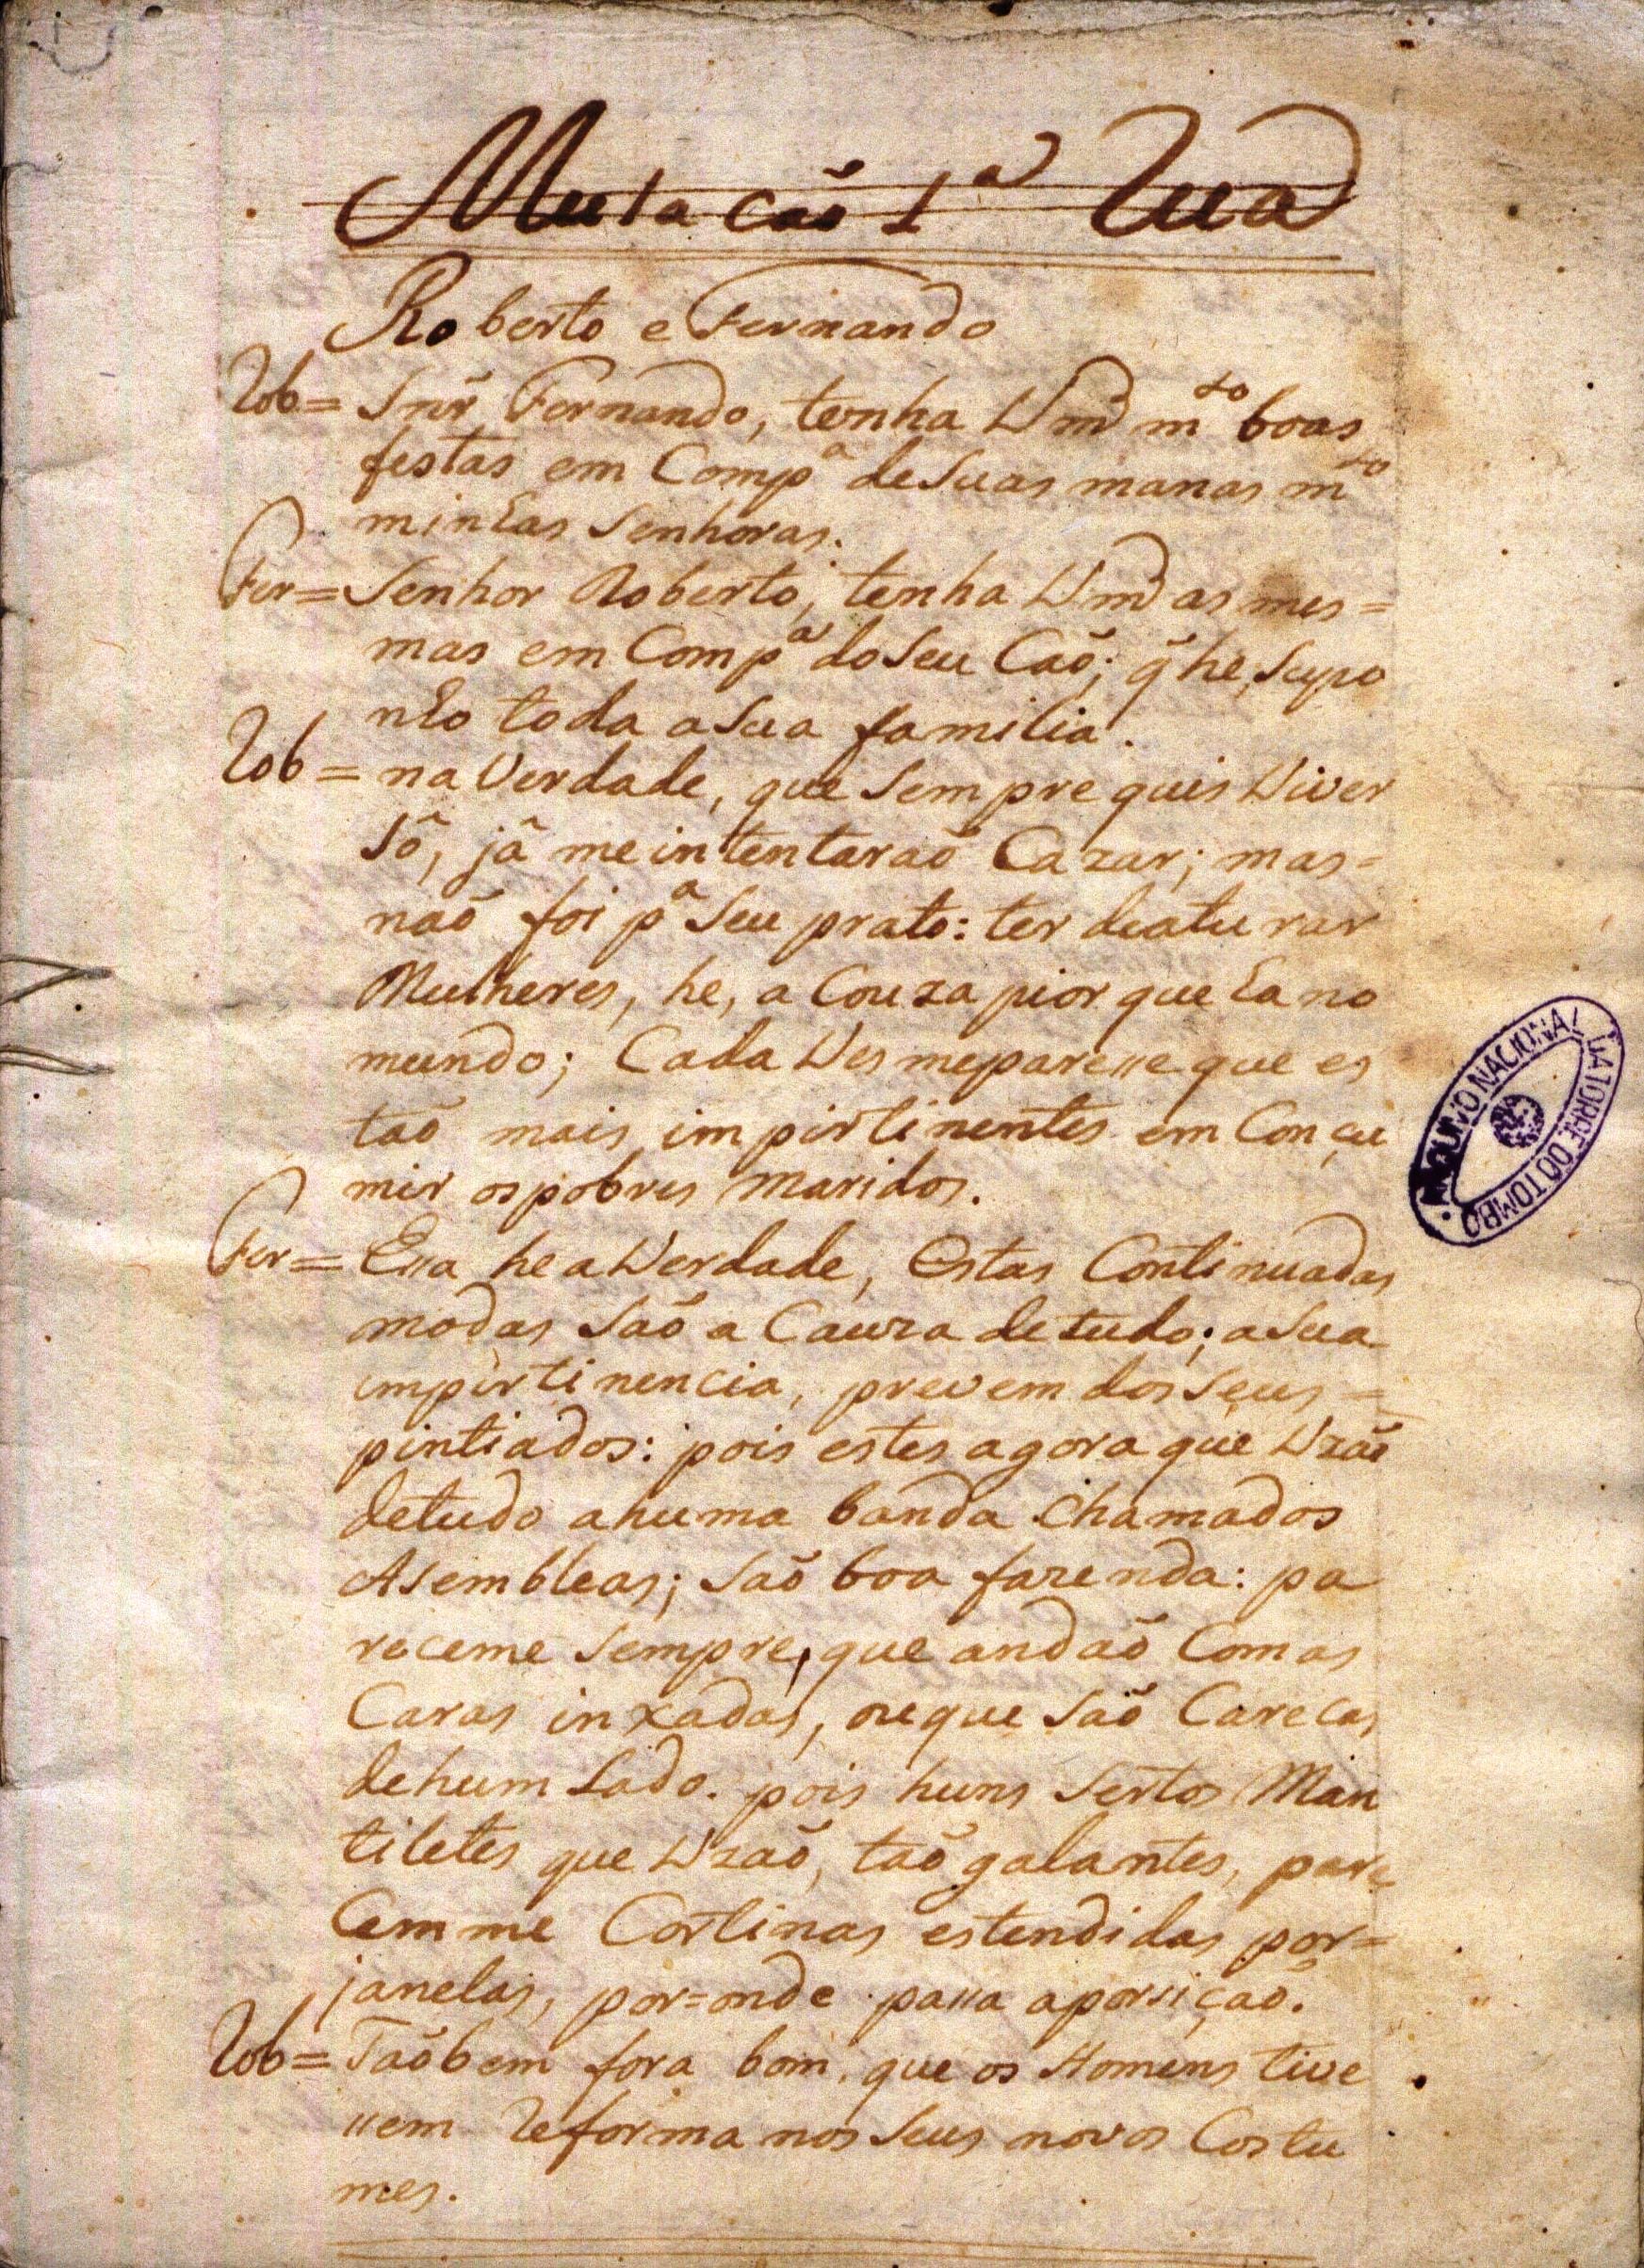 Mutacaõ 1ª Rua
Roberto e Fernando
Rob= Snr̃ Fernando, tenha Vm̃ m.to boas
festas em Compª de Suas manas m.to
minhas Senhoras.
Fer= Senhor Roberto, tenha Vm̃ as mes=
mas em Compª do Seu Caõ; q̃ he, Supo
nho toda a Sua familia.
Rob= na Verdade, que Sempre quis Viver
Sô, jâ me intentaraõ Cazar; mas=
naõ foi pª Seu prato: ter de aturar
Mulheres, he, a Couza pior que ha no
mundo; Cada Ves me paresse que es
taõ mais impirtinentes em Conçu
mir os pobres Maridos.
Fer= Essa he a Verdade, Estas Continuadas
modas Saõ a Cauza de tudo; a Sua
impirtinencia, prevem dos Seus=
pintiados: pois estes agora que Vzaõ
de tudo a huma banda Chamados
Asembleas; Saõ boa fazenda: pa
receme Sempre, que andaõ Com as
Caras inxadas, ou que Saõ Carecas
de hum Lado. pois huns Sertos Man
tiletes que Vzaõ, taõ galantes, pare
Cemme Cortinas estendidas por=
janelas, por=onde passa a porsiçaõ.
Rob= Taõbem fora bom, que os Homens tive
ssem Reforma nos Seus novos Costu
mes.
ARQUIVO NACIONAL
DA TORRE DO TOMBO